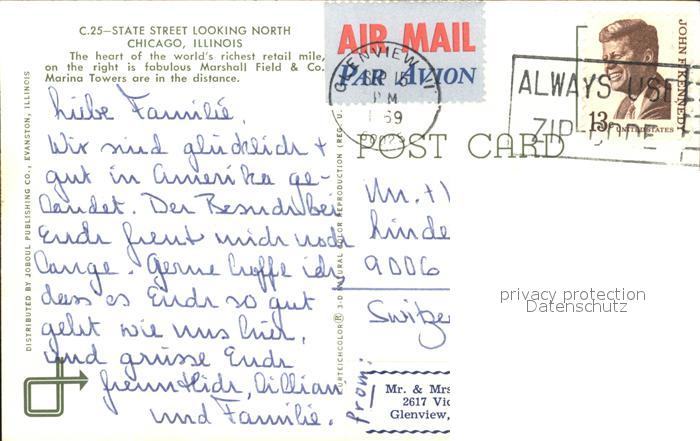 C.25—STATE STREET LOOKING NORTH
CHICAGO, ILLINOIS
The heart of the world's richest retail mile,
on the right is fabulous Marshall Field & Co.
Marina Towers are in the distance.
AIR MAIL
PAR AVION
GLENVIEW, IL
SEP 15
PM
1969
60025
ALWAYS USE
ZIP CODE
JOHN F. KENNEDY
13c UNITED STATES
POST CARD
Liebe Familie,
Wir sind glücklich +
gut in Amerika ge-
landet. Der Besuch bei
Euch freut mich noch
lange. Gerne hoffe ich,
dass es Euch so gut
geht wie uns hier,
und grüsse Euch
freundlich, Lillian
und Familie.
DISTRIBUTED BY JOBOUL PUBLISHING CO., EVANSTON, ILLINOIS
CURTEICHCOLOR® 3-D NATURAL COLOR REPRODUCTION (REG. U.
Mr. +
Linde
9006
Switze
From:
Mr. & Mrs
2617 Vic
Glenview,
privacy protection
Datenschutz